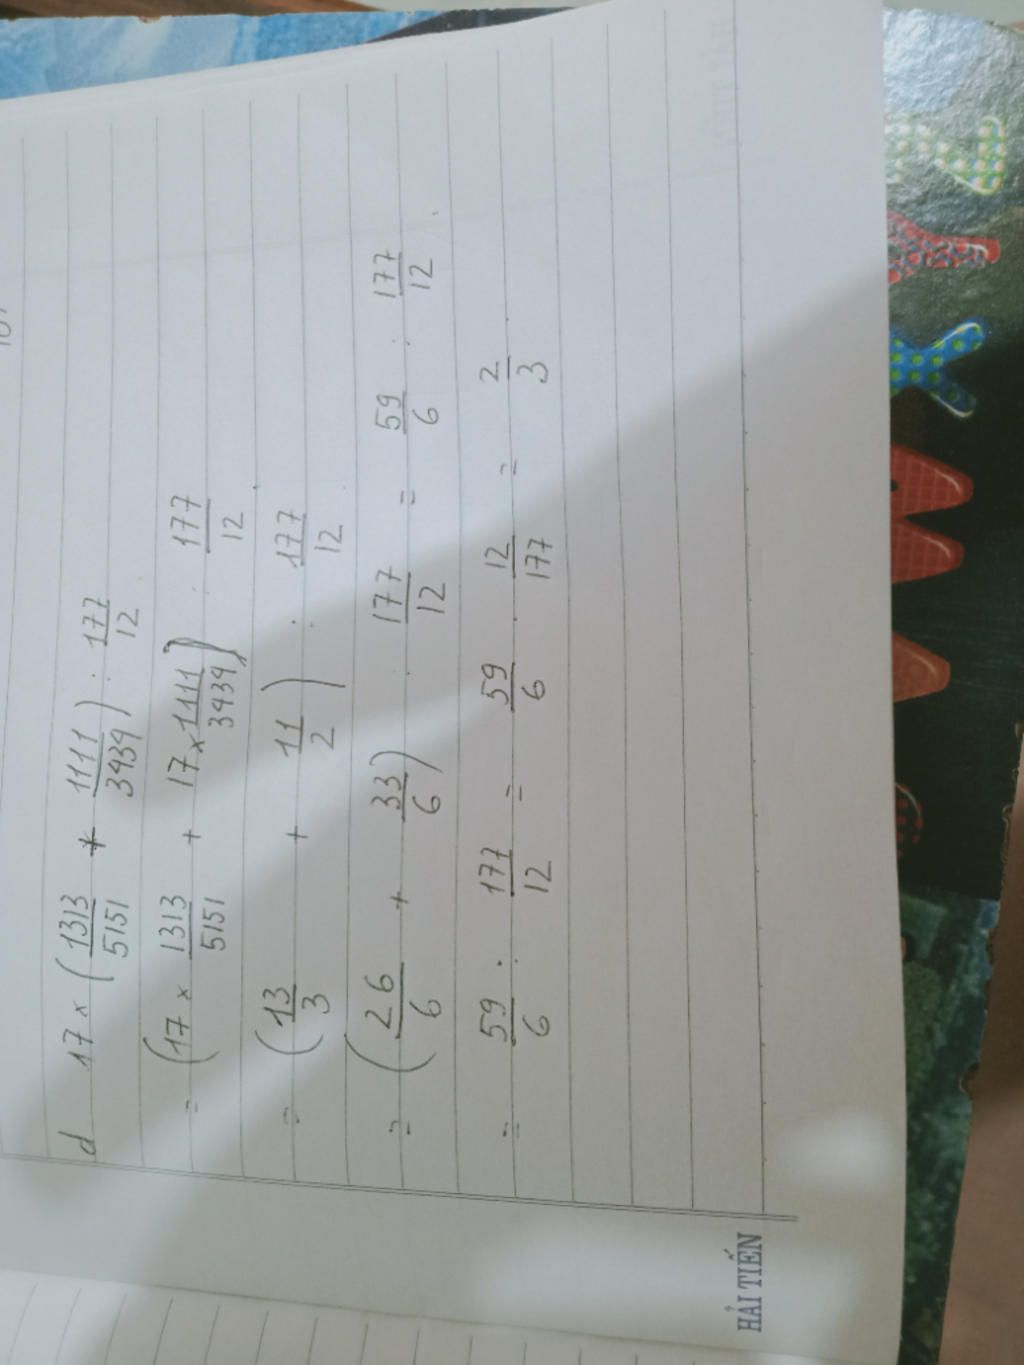 d 17 × (1313/5151 + 1111/3434) : 177/12
= (17 × 1313/5151 + 17 × 1111/3434) : 177/12
= (13/3 + 11/2) : 177/12
= (26/6 + 33/6) : 177/12 = 59/6 : 177/12
= 59/6 : 177/12 = 59/6 . 12/177 = 2/3
HẢI TIẾN